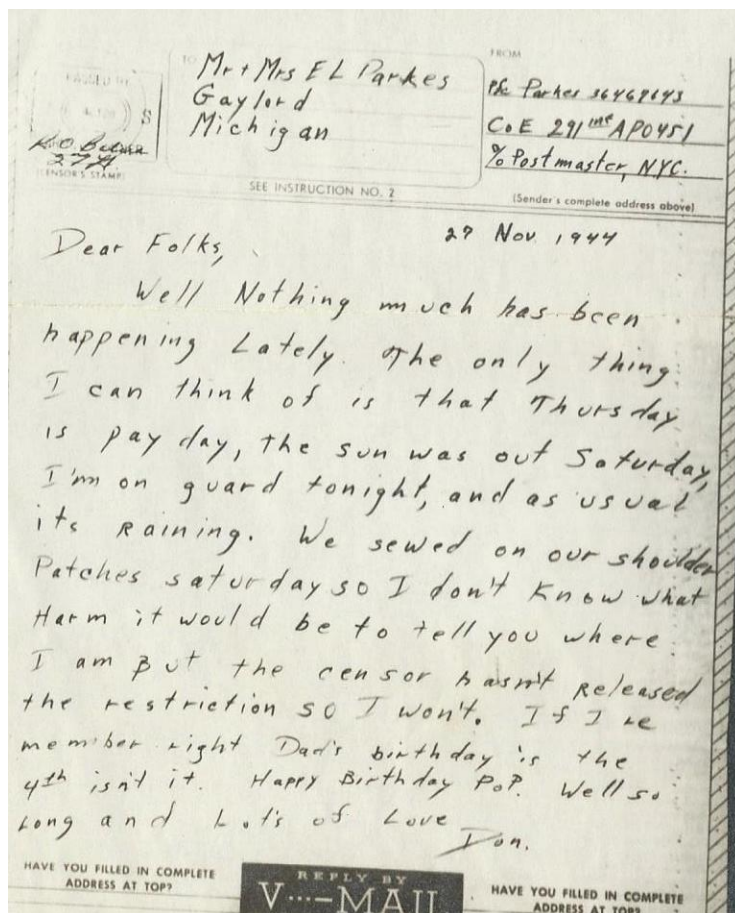 TO
Mr + Mrs E L Parkes
Gaylord
Michigan
FROM
Pfc Parkes 36469643
Co E 291 inf APO 451
% Postmaster, NYC.
(Sender's complete address above)
PASSED BY
S
27
(CENSOR'S STAMP)
SEE INSTRUCTION NO. 2
27 Nov 1944
Dear Folks,
Well Nothing much has been
happening Lately. The only thing
I can think of is that Thursday
is pay day, the sun was out Saturday,
I'm on guard tonight, and as usual
its Raining. We sewed on our shoulder
Patches saturday so I don't Know what
Harm it would be to tell you where
I am But the censor hasn't Released
the restriction so I won't. If I re
member right Dad's birthday is the
4th isn't it. Happy Birthday PoP. Well so
Long and Lots of Love
Don.
HAVE YOU FILLED IN COMPLETE
ADDRESS AT TOP?
REPLY BY
V···—MAIL
HAVE YOU FILLED IN COMPLETE
ADDRESS AT TOP?